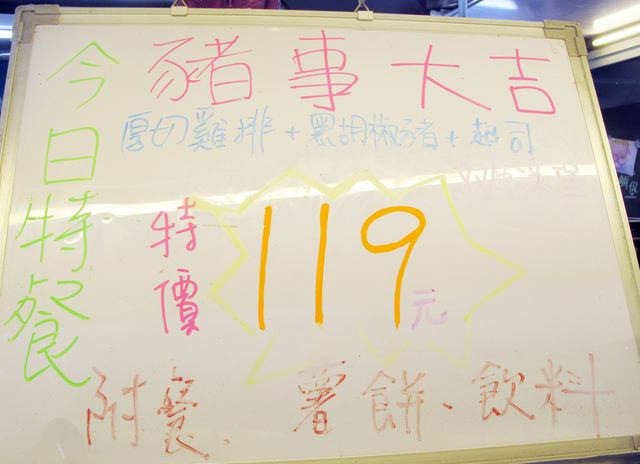 今日特餐
豬事大吉
厚切雞排+黑胡椒豬+起司
特價
119元
附餐 薯餅、飲料